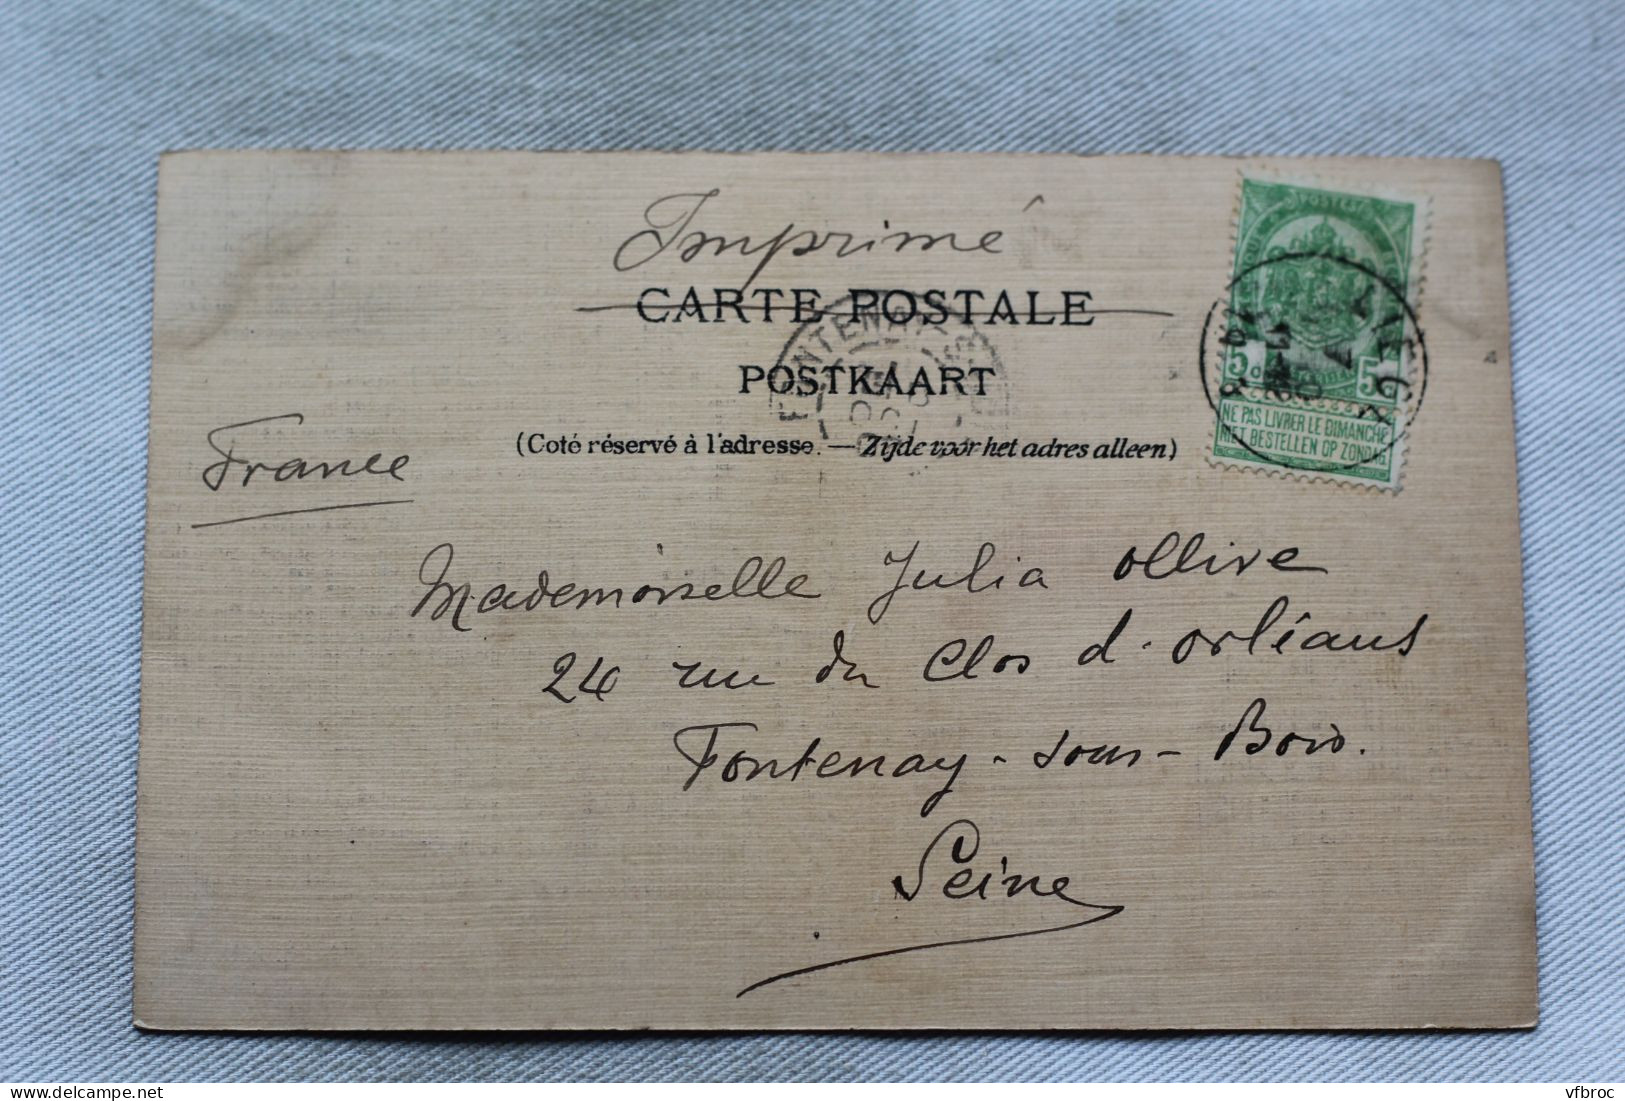 Imprimé
CARTE POSTALE
POSTKAART
(Coté réservé à l'adresse. — Zijde voor het adres alleen)
POSTES
5 5
NE PAS LIVRER LE DIMANCHE
NIET BESTELLEN OP ZONDAG
LIEGE
FONTENAY-S
France
Mademoiselle Julia Ollive
24 rue du Clos d'orléans
Fontenay-sous-Bois.
Seine
delcampe.net
vfbroc